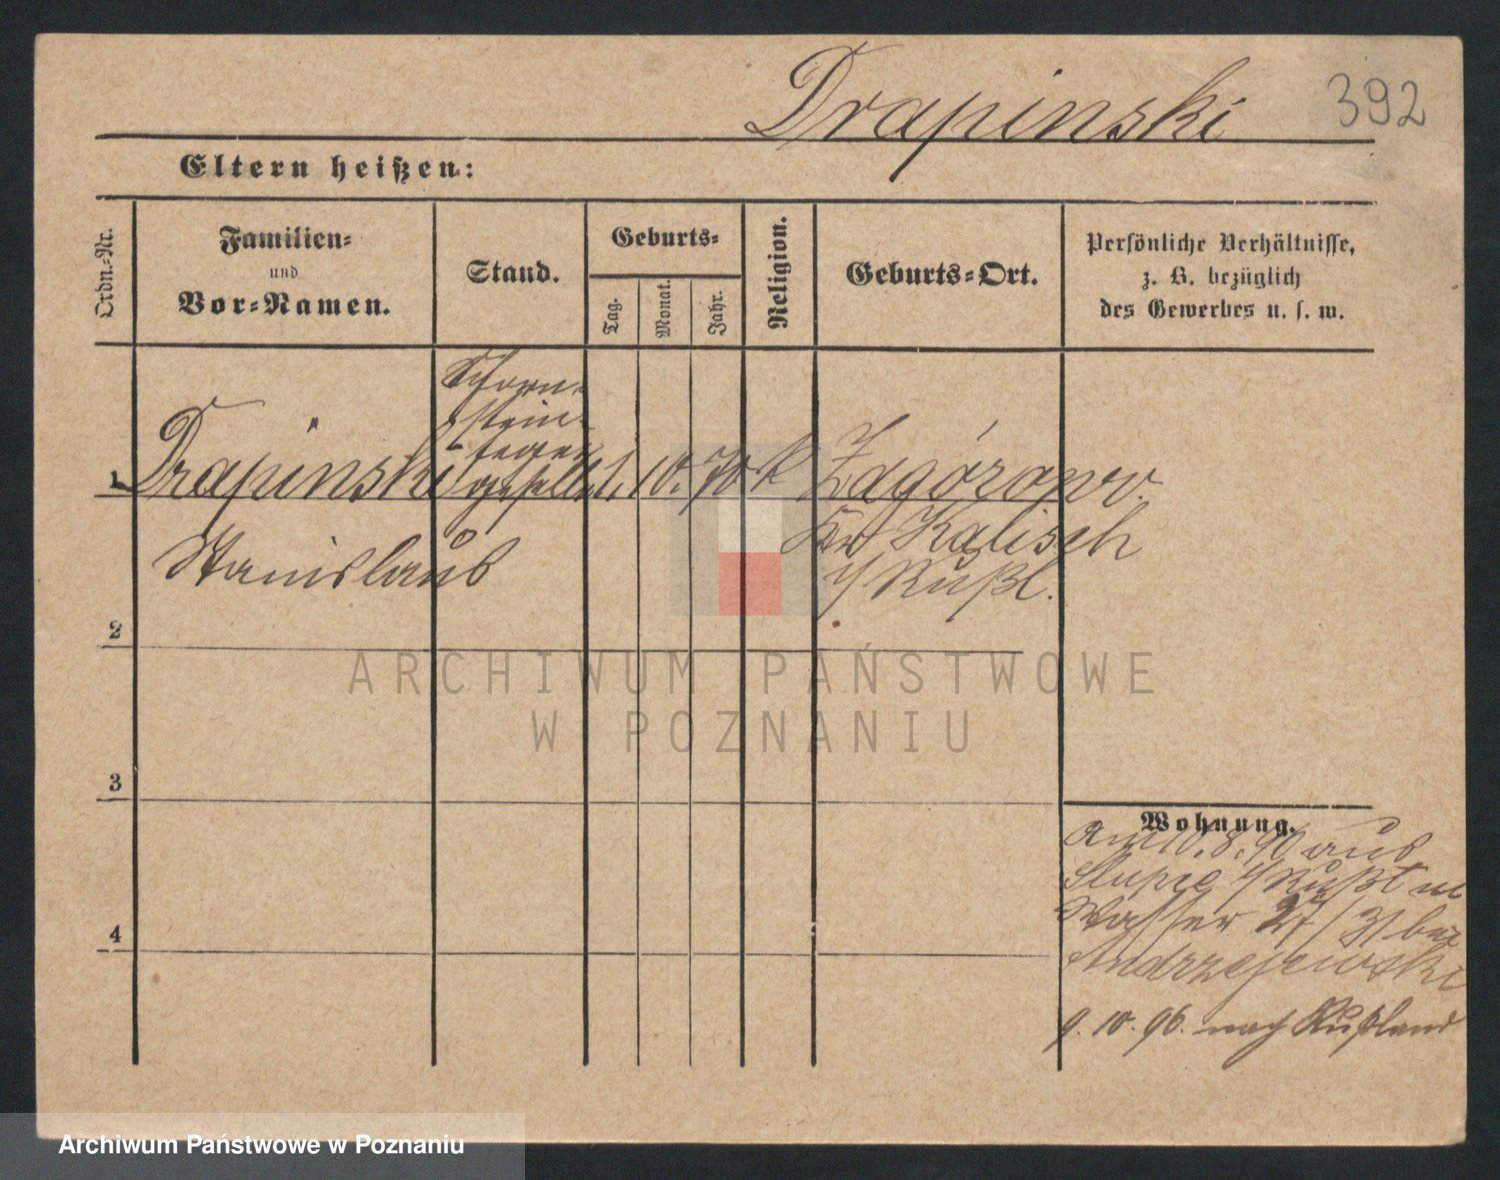 Drapinski 392
Eltern heißen:
Ordn.-Nr.
Familien-
und
Vor-Namen.
Stand.
Geburts-
Tag.
Monat.
Jahr.
Religion.
Geburts-Ort.
Persönliche Verhältnisse,
z. B. bezüglich
des Gewerbes u. s. w.
1
Drapinski
Stanislaus
Schorn-
stein-
feger
geselle
1. 10. 70 K
Zagórow.
Kr. Kalisch
i/ Rußl.
2
3
4
Wohnung.
Am 10. 8. 90 aus
Slupce i/ Rußl n
Wasser 27/31 bei
Andrzejewski
9. 10. 96. nach Rußland
ARCHIWUM PAŃSTWOWE
W POZNANIU
Archiwum Państwowe w Poznaniu